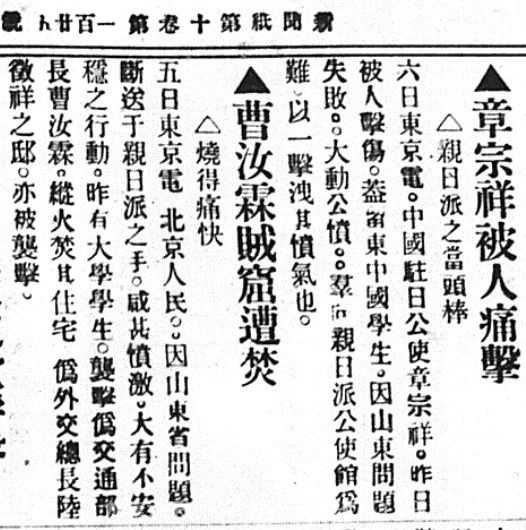 新聞紙第十卷第一百廿九號
▲章宗祥被人痛擊
△親日派之當頭棒
六日東京電。中國駐日公使章宗祥。昨日
被人擊傷。蓋留東中國學生。因山東問題
失敗。。大動公憤。。羣向親日派公使館爲
難。以一擊洩其憤氣也。
▲曹汝霖賊窟遭焚
△燒得痛快
五日東京電 北京人民。。因山東省問題。
斷送于親日派之手。咸甚憤激。大有不安
穩之行動。昨有大學學生。襲擊僞交通部
長曹汝霖。縱火焚其住宅 僞外交總長陸
徵祥之邸。亦被襲擊。